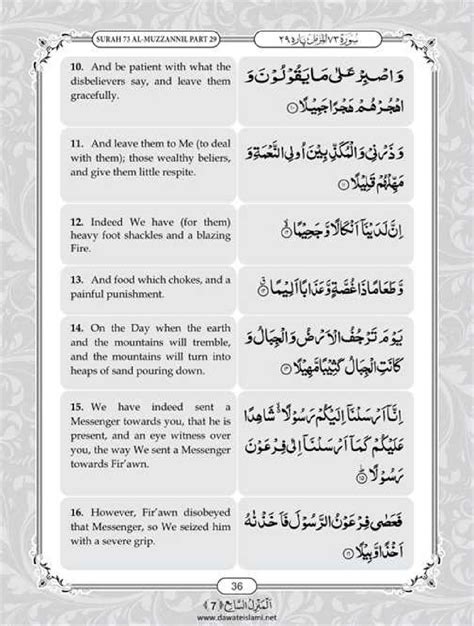 SURAH 73 AL-MUZZANNIL PART 29
سورة ٧٣ المزمل پارہ ٢٩
10. And be patient with what the
disbelievers say, and leave them
gracefully.
وَاصْبِرْ عَلٰى مَا يَقُوْلُوْنَ وَ
اهْجُرْهُمْ هَجْرًا جَمِيْلًا ۝١٠
11. And leave them to Me (to deal
with them); those wealthy beliers,
and give them little respite.
وَذَرْنِيْ وَالْمُكَذِّبِيْنَ اُولِي النَّعْمَةِ وَ
مَهِّلْهُمْ قَلِيْلًا ۝١١
12. Indeed We have (for them)
heavy foot shackles and a blazing
Fire.
اِنَّ لَدَيْنَاۤ اَنْكَالًا وَّجَحِيْمًا ۝١٢
13. And food which chokes, and a
painful punishment.
وَّطَعَامًا ذَا غُصَّةٍ وَّعَذَابًا اَلِيْمًا ۝١٣
14. On the Day when the earth
and the mountains will tremble,
and the mountains will turn into
heaps of sand pouring down.
يَوْمَ تَرْجُفُ الْاَرْضُ وَالْجِبَالُ وَ
كَانَتِ الْجِبَالُ كَثِيْبًا مَّهِيْلًا ۝١٤
15. We have indeed sent a
Messenger towards you, that he is
present, and an eye witness over
you, the way We sent a Messenger
towards Fir'awn.
اِنَّاۤ اَرْسَلْنَاۤ اِلَيْكُمْ رَسُوْلًا شَاهِدًا
عَلَيْكُمْ كَمَاۤ اَرْسَلْنَاۤ اِلٰى فِرْعَوْنَ
رَسُوْلًا ۝١٥
16. However, Fir'awn disobeyed
that Messenger, so We seized him
with a severe grip.
فَعَصٰى فِرْعَوْنُ الرَّسُوْلَ فَاَخَذْنٰهُ
اَخْذًا وَّبِيْلًا ۝١٦
36
اَلْمَنْزِلُ السَّابِع ﴿7﴾
www.dawateislami.net